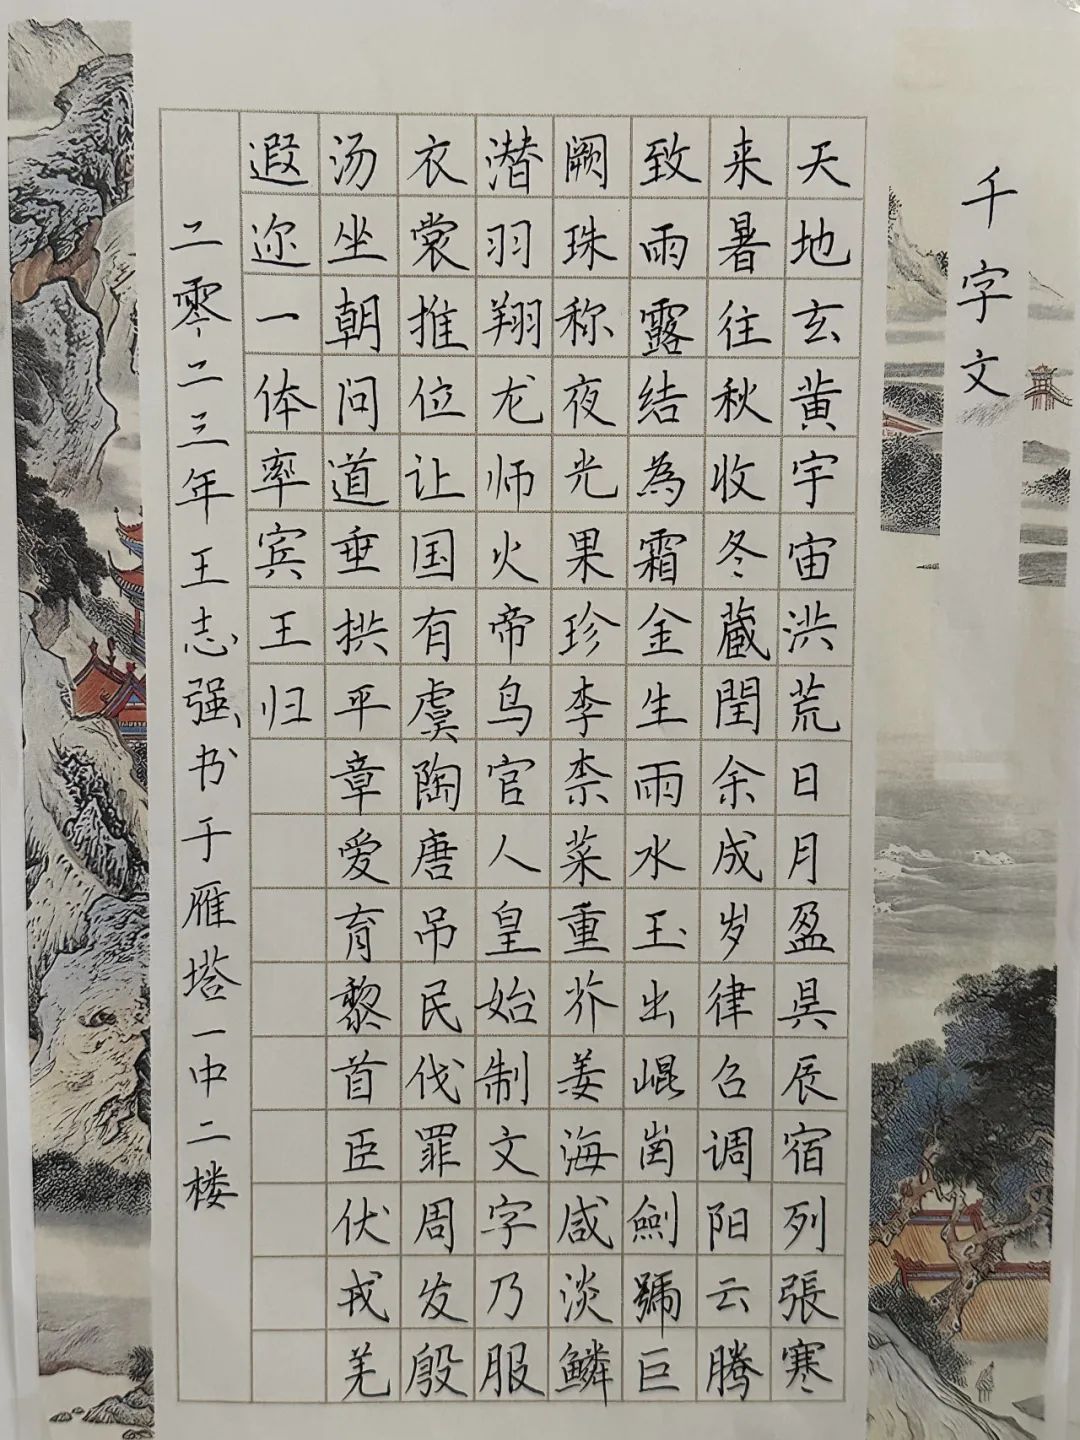 千字文
天地玄黄宇宙洪荒日月盈昃辰宿列張寒
来暑往秋收冬藏閏余成岁律召调阳云腾
致雨露结為霜金生雨水玉出崐崗劍號巨
阙珠称夜光果珍李柰菜重芥姜海咸淡鳞
潜羽翔龙师火帝鸟官人皇始制文字乃服
衣裳推位让国有虞陶唐吊民伐罪周发殷
汤坐朝问道垂拱平章爱育黎首臣伏戎羌
遐迩一体率宾王归
二零二三年王志强书于雁塔一中二楼